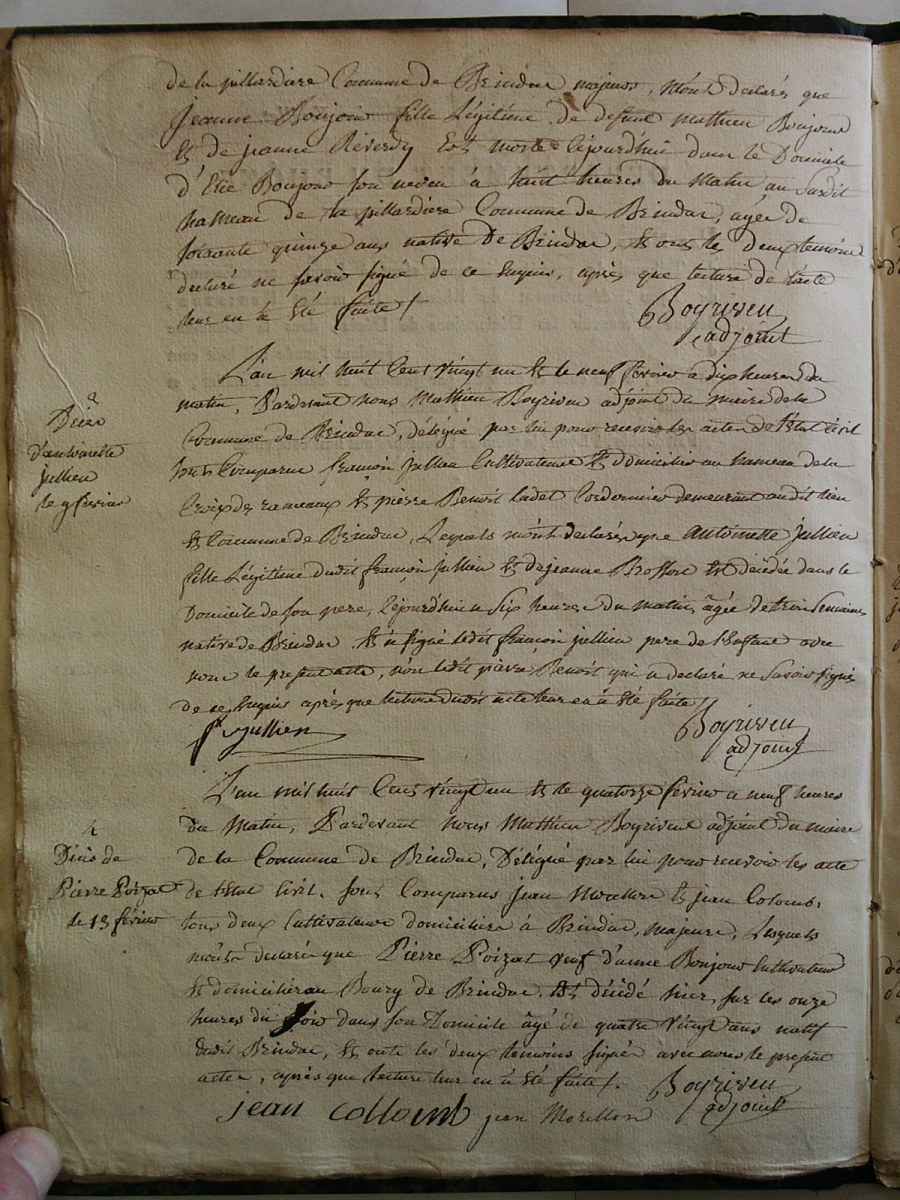 de la pillardiere Commune de Brindas majeurs, m'ont declarés que
jeanne Boujour fille Légitime de defunt mathieu Boujour
& de jeanne Réverdy Est morte cejourd'hui dans le Domicile
d'Elie Boujour son neveu à huit heures du Matin au Susdit
hameau de la pillardiere Commune de Brindas, agée de
soixante quinze ans native de Brindas, & ont les deux temoins
declaré ne savoir signé de ce enquis, après que lecture de l'acte
leur en à été faite /.
Boyriven
adjoint
L'an mil huit Cent vingt un & le neuf fevrier a dix heures du
matin, Pardevant nous Mathieu Boyriven adjoint du maire de la
Commune de Brindas, délégué par lui pour recevoir les actes de l'Etat Civil
sont Comparus françois jullien Cultivateur & domicilié au hameau de la
Croix des rameaux & pierre Benoit cadet Cordonnier demeurant audit lieu
& Commune de Brindas, Lesquels m'ont declarés que Antoinette jullien
fille Légitime dudit françois jullien & de jeanne Est décédée dans le
Domicile de son pere, Cejourd'hui a Six heures du matin, âgée de trois Semaines
native de Brindas & a signé ledit françois jullien pere de l'Enfant avec
nous le present acte, non ledit pierre Benoit qui a declaré ne Savoir signer
de ce Enquis après que lecture dudit acte leur en à été faite /.
Décés
d'antoinette
jullien
le 9 fevrier
fs jullien
Boyriven
adjoint
L'an mil huit Cent vingt un & le quatorze fevrier a neuf heures
du Matin, Pardevant Nous Matthieu Boyriven adjoint du maire
de la Commune de Brindas, Délégué par lui pour recevoir les acte
de l'Etat Civil. sont Comparus jean & jean
tous deux Cultivateurs domiciliés à Brindas, majeurs, Lesquels
m'ont declaré que Pierre Poizat veuf d'anne Boujour Cultivateur
& domicilié au Bourg de Brindas, Est décédé hier, sur les onze
heures du Soir dans son Domicile âgé de quatre vingt ans natif
dudit Brindas, & ont les deux temoins signés avec nous le present
acte, après que lecture leur en à été faite /.
Décés de
Pierre Poizat
le 13 février
Boyriven
adjoint
jean
jean Morellon